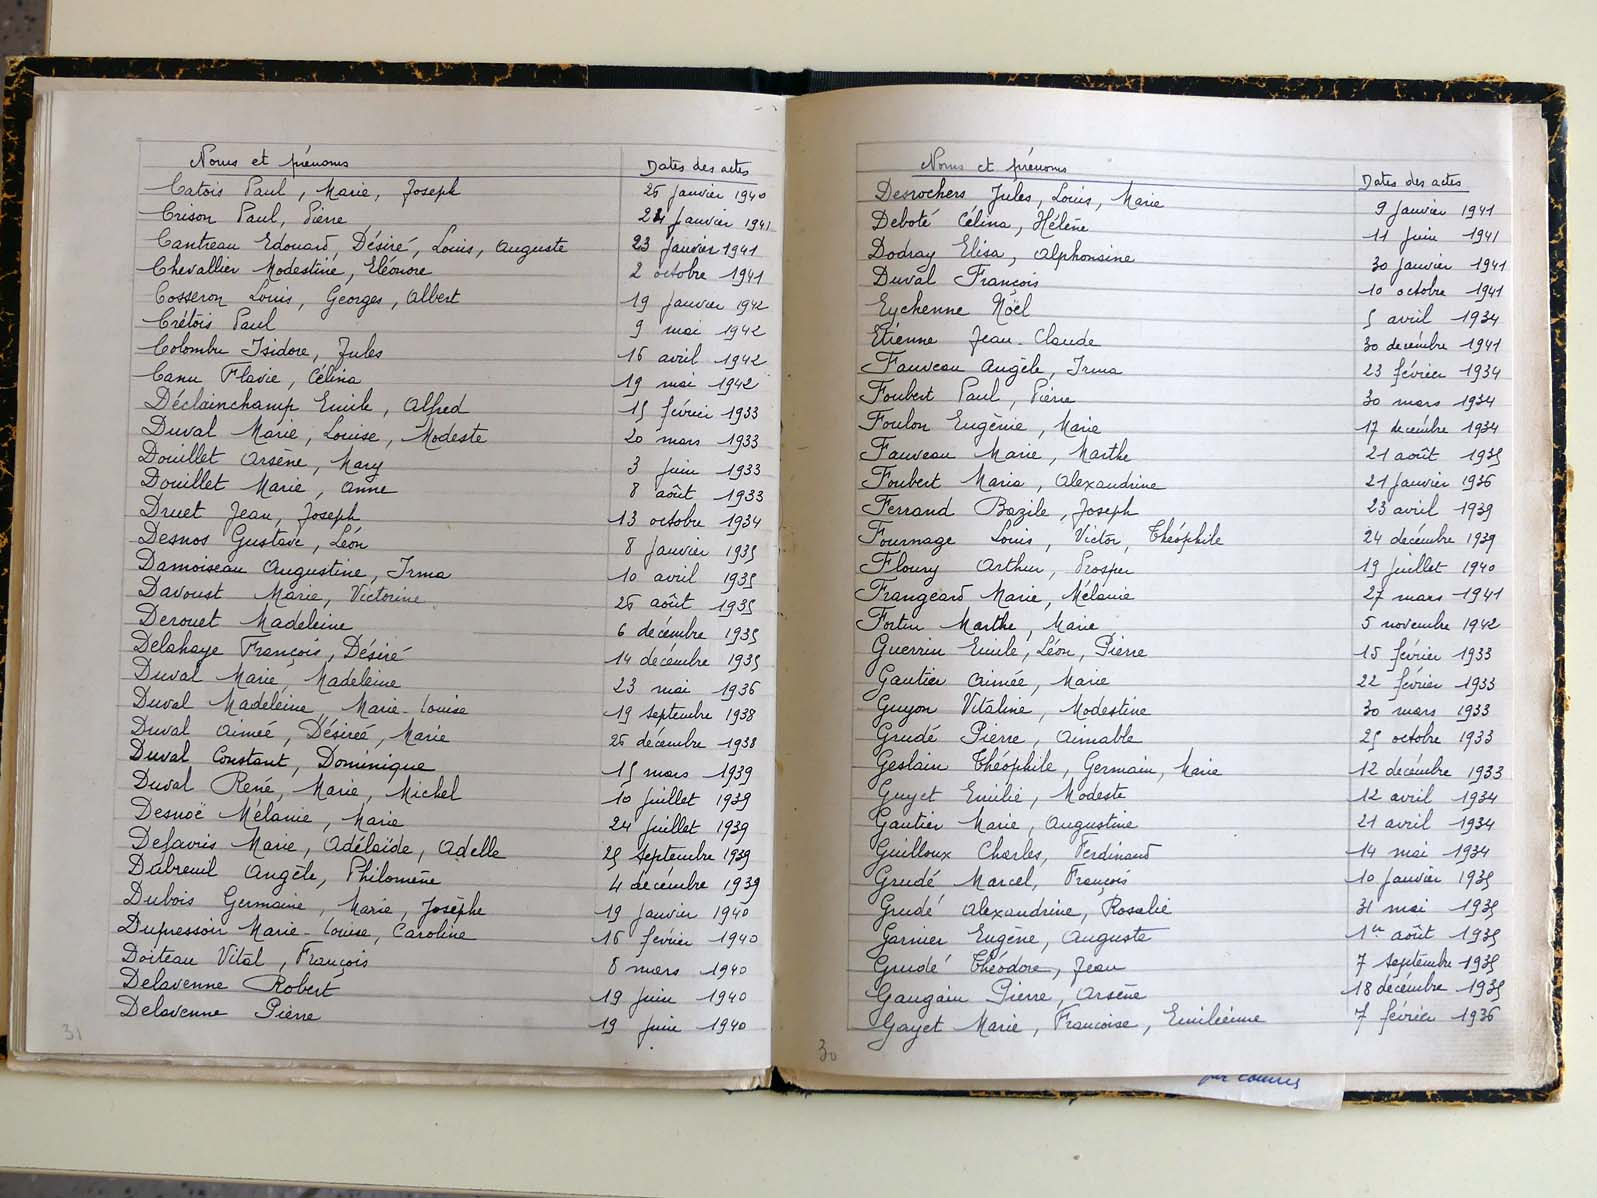 Noms et prénoms Dates des actes
Catois Paul, Marie, Joseph 26 janvier 1940
Crison Paul, Pierre 24 janvier 1941
Cantreau Edouard, Désiré, Louis, Auguste 23 janvier 1941
Chevallier Modestine, Eléonore 2 octobre 1941
Cosseron Louis, Georges, Albert 19 janvier 1942
Crétois Paul 9 mai 1942
Colombu Isidore, Jules 16 avril 1942
Canu Flavie, Célina 19 mai 1942
Déclainchamp Emile, Alfred 15 février 1933
Duval Marie, Louise, Modeste 20 mars 1933
Douillet Arsène, Mary 3 juin 1933
Douillet Marie, Anne 8 août 1933
Druet Jean, Joseph 13 octobre 1934
Desnos Gustave, Léon 8 janvier 1935
Damoiseau Augustine, Irma 10 avril 1935
Davoust Marie, Victorine 26 août 1935
Derouet Madeleine 6 décembre 1935
Delahaye François, Désiré 14 décembre 1935
Duval Marie, Madeleine 23 mai 1936
Duval Madeleine, Marie-Louise 19 septembre 1938
Duval Aimée, Désirée, Marie 26 décembre 1938
Duval Constant, Dominique 15 mars 1939
Duval René, Marie, Michel 10 juillet 1939
Desnoë Mélanie, Marie 24 juillet 1939
Defavris Marie, Adélaïde, Adelle 25 septembre 1939
Dubreuil Angèle, Philomène 4 décembre 1939
Dubois Germaine, Marie, Josèphe 19 janvier 1940
Dupressoir Marie-Louise, Caroline 16 février 1940
Doiteau Vital, François 8 mars 1940
Delavenne Robert 19 juin 1940
Delavenne Pierre 19 juin 1940
31
Noms et prénoms Dates des actes
Desrochers Jules, Louis, Marie 9 janvier 1941
Deboté Célina, Hélène 11 juin 1941
Dodray Elisa, Alphonsine 30 janvier 1941
Duval François 10 octobre 1941
Eychenne Noël 5 avril 1934
Etienne Jean-Claude 30 décembre 1941
Fauveau Angèle, Irma 23 février 1934
Foubert Paul, Pierre 30 mars 1934
Foulon Eugénie, Marie 17 décembre 1934
Fauveau Marie, Marthe 21 août 1935
Foubert Maria, Alexandrine 21 janvier 1936
Ferrand Bazile, Joseph 23 avril 1939
Fournage Louis, Victor, Théophile 24 décembre 1939
Floury Arthur, Prosper 19 juillet 1940
Frangeard Marie, Mélanie 27 mars 1941
Fortin Marthe, Marie 5 novembre 1942
Guerrin Emile, Léon, Pierre 15 février 1933
Gautier Aimée, Marie 22 février 1933
Guyon Vitaline, Modestine 30 mars 1933
Grudé Pierre, Aimable 25 octobre 1933
Geslain Théophile, Germain, Marie 12 décembre 1933
Guyet Emilie, Modeste 12 avril 1934
Gautier Marie, Augustine 21 avril 1934
Guilloux Charles, Ferdinand 14 mai 1934
Grudé Marcel, François 10 janvier 1935
Grudé Alexandrine, Rosalie 31 mai 1935
Garnier Eugène, Auguste 1er août 1935
Grudé Théodore, Jean 7 septembre 1935
Gaugain Pierre, Arsène 18 décembre 1935
Gayet Marie, Francoise, Emilienne 7 février 1936
30